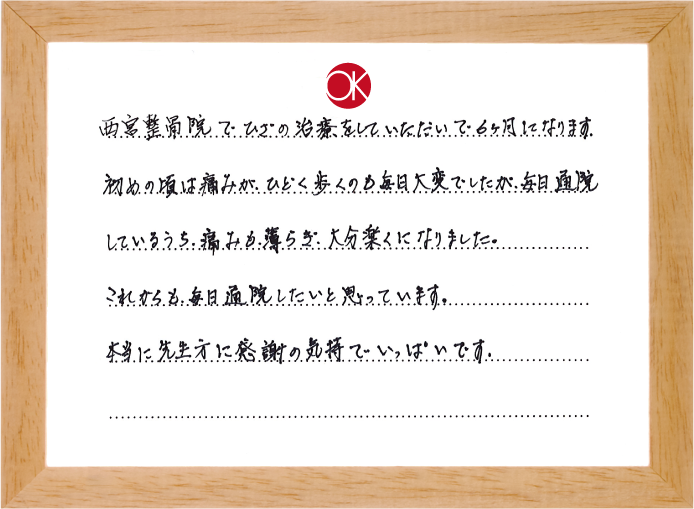 OK
西宮整骨院でひざの治療をしていただいで6ヶ月になります。
初めの頃は痛みが、ひどく歩くのも毎日大変でしたが、毎日通院
しているうち、痛みも、薄らぎ、大分楽くになりました。
これからも、毎日通院したいと思っています。
本当に先生方に感謝の気持でいっぱいです。